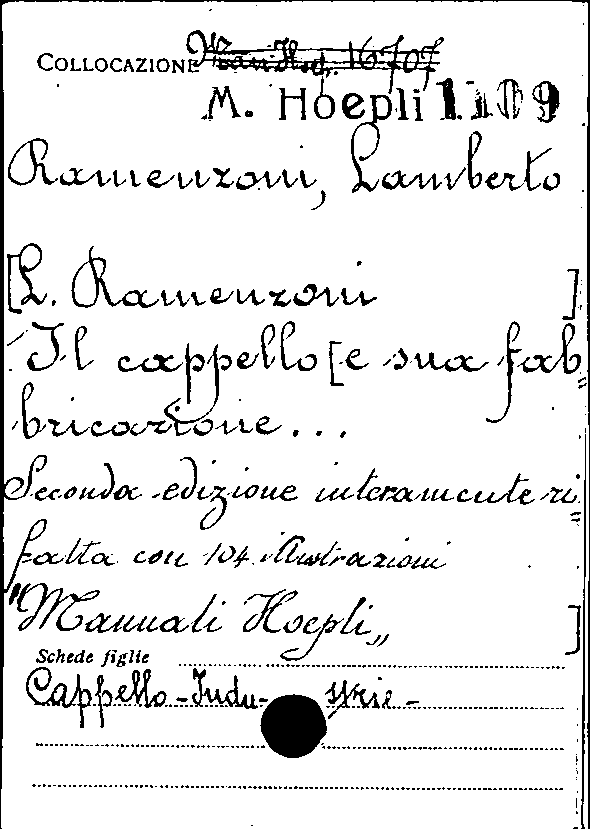 COLLOCAZIONE 16707
M. Hoepli 1109
Ramenzoni, Lamberto
[L. Ramenzoni ]
Il cappello [e sua fab=
bricazione...
Seconda edizione interamente ri=
fatta con 104 illustrazioni
"Manuali Hoepli„ ]
Schede figlie
Cappello - Indu- strie -